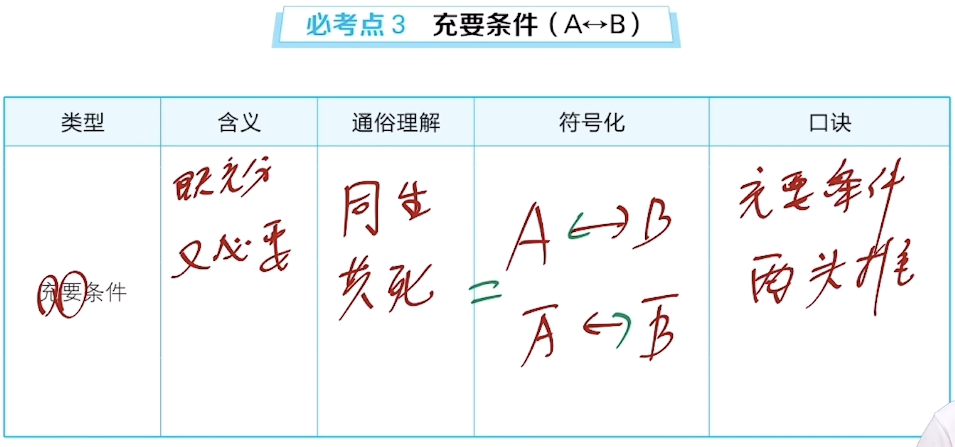 必考点 3 充要条件（A↔B）
类型 含义 通俗理解 符号化 口诀
充要条件
既充分
又必要
同生
共死
A ↔ B
= A̅ ↔ B̅
充要条件
两头推